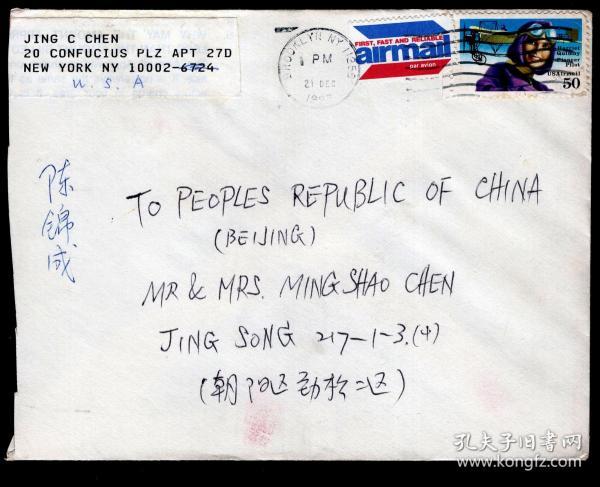 JING C CHEN
20 CONFUCIUS PLZ APT 27D
NEW YORK NY 10002-6724
U.S.A
BROOKLYN NY 11256
PM
21 DEC
FIRST, FAST AND RELIABLE
airmail
par avion
Harriet
Quimby
Pioneer
Pilot
USAirmail
50
陈锦成
TO PEOPLES REPUBLIC OF CHINA
(BEIJING)
MR & MRS. MINGSHAO CHEN
JING SONG 217-1-3.(4)
(朝阳区劲松二区)
孔夫子旧书网
www.kongfz.com